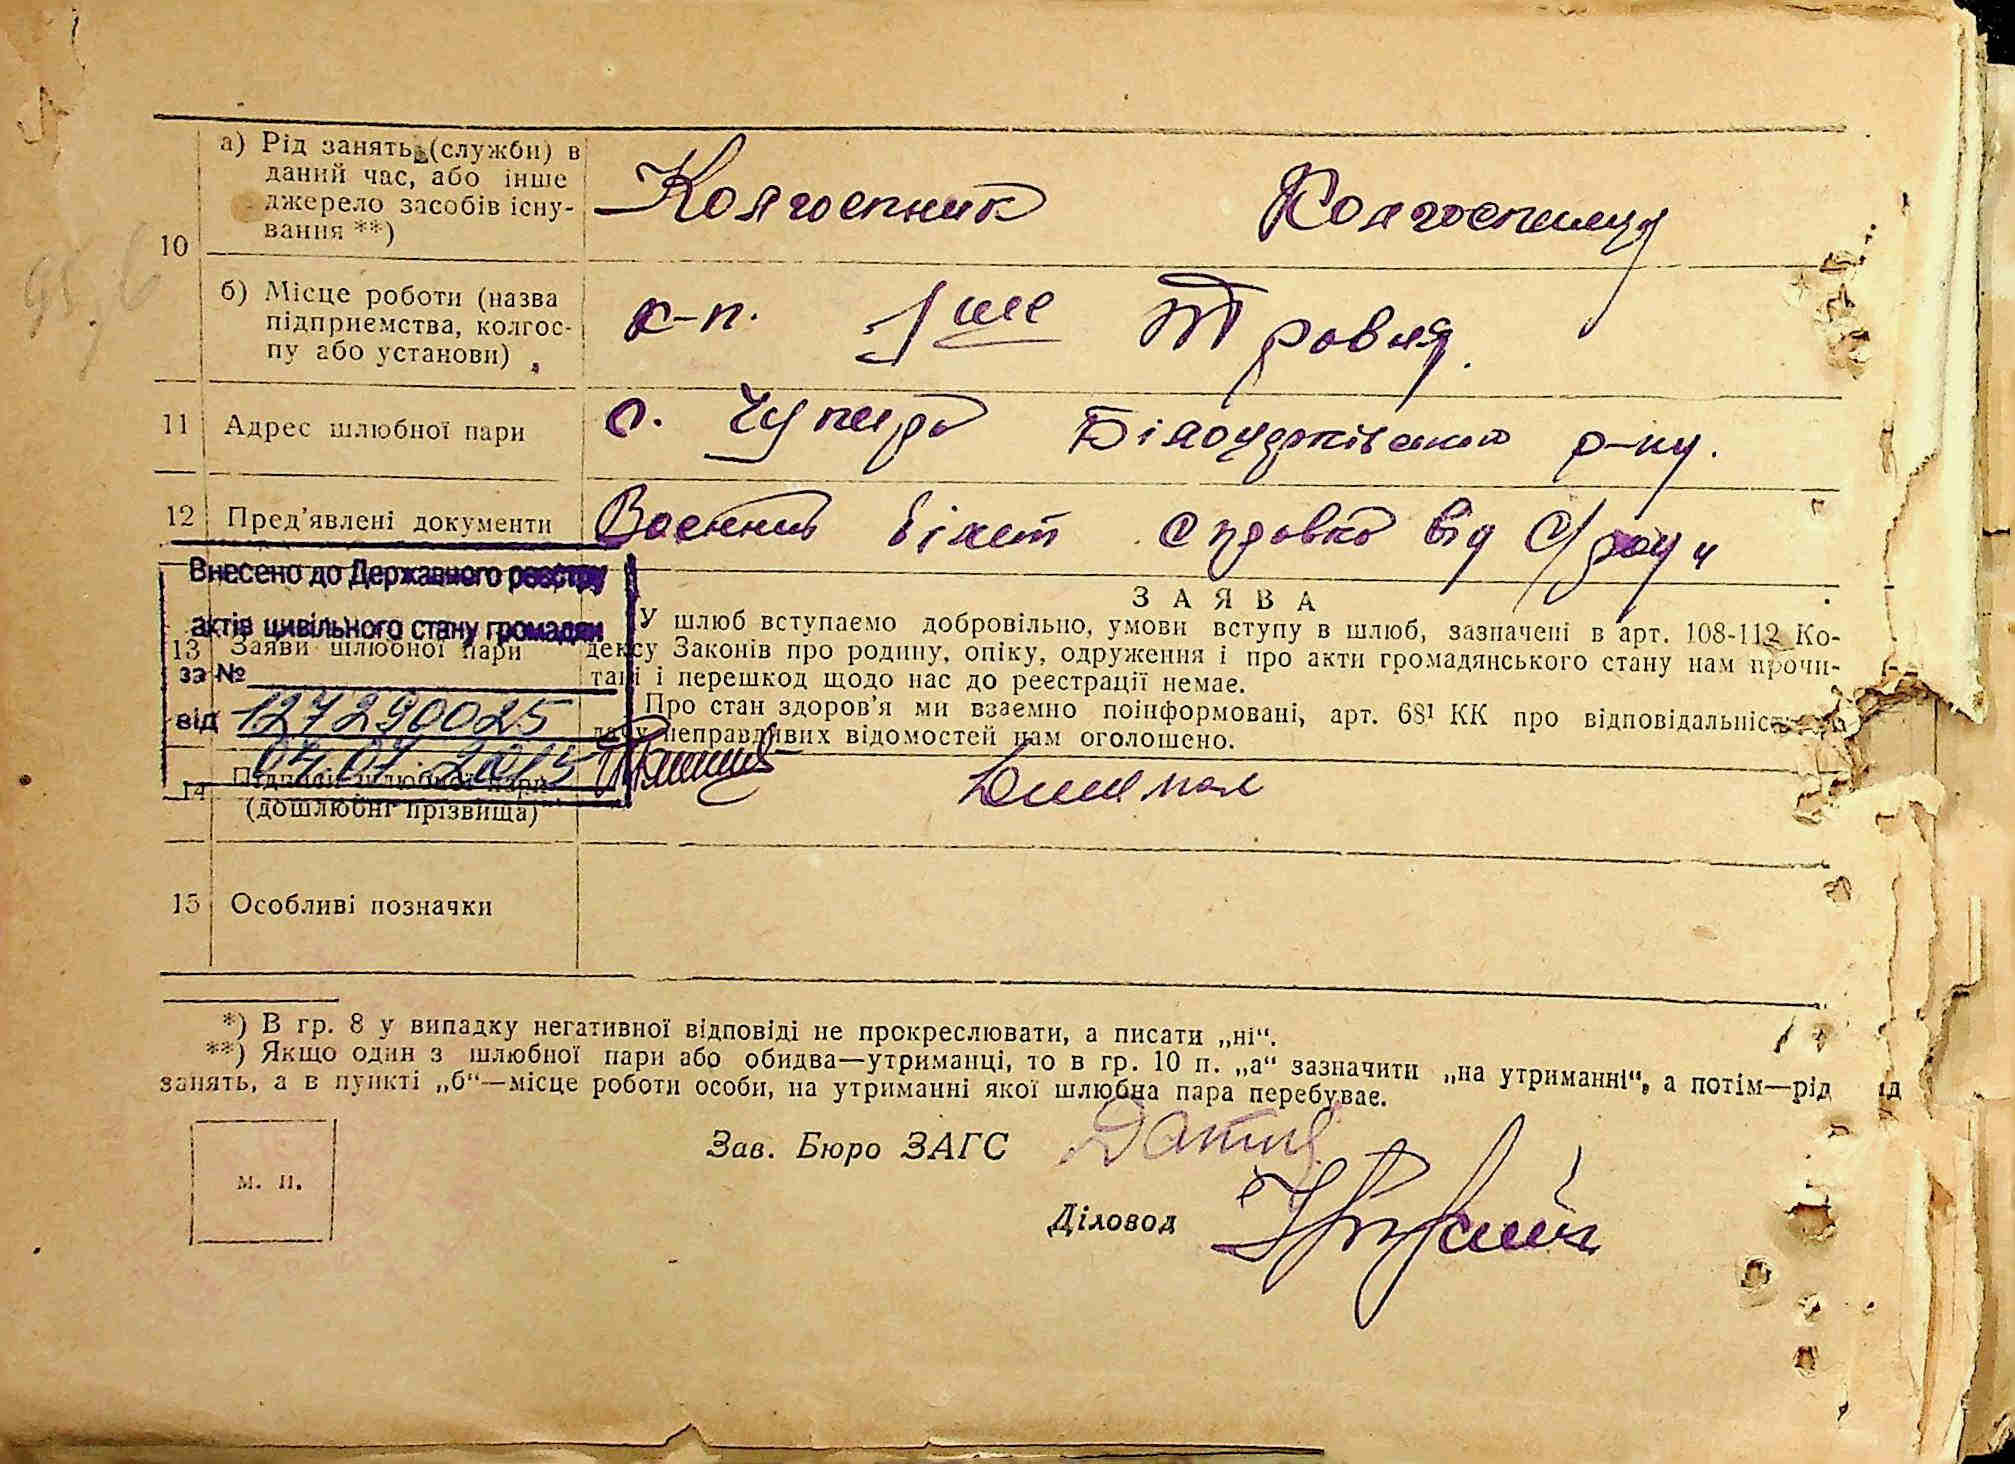 а) Рід занять (служби) в
даний час, або інше
джерело засобів існу-
вання **)
10
Колгоспник Колгоспниця
б) Місце роботи (назва
підприємства, колгос-
пу або установи)
к-п. 1ше Травня.
11 Адрес шлюбної пари
с. Чупира Білоцерківського р-ну.
12 Пред'явлені документи
Воєнний білет справка від с/ради
Внесено до Державного реєстру
актів цивільного стану громадян
за №
від 127290025
04.07.2015
ЗАЯВА
13 Заяви шлюбної пари
У шлюб вступаємо добровільно, умови вступу в шлюб, зазначені в арт. 108-112 Ко-
дексу Законів про родину, опіку, одруження і про акти громадянського стану нам прочи-
тані і перешкод щодо нас до реєстрації немає.
Про стан здоров'я ми взаємно поінформовані, арт. 68¹ КК про відповідальність
дачу неправдивих відомостей нам оголошено.
14 Підписи шлюбної пари
(дошлюбні прізвища)
15 Особливі позначки
*) В гр. 8 у випадку негативної відповіді не прокреслювати, а писати „ні“.
**) Якщо один з шлюбної пари або обидва—утриманці, то в гр. 10 п. „а“ зазначити „на утриманні“, а потім—рід
занять, а в пункті „б“—місце роботи особи, на утриманні якої шлюбна пара перебуває.
Зав. Бюро ЗАГС
м. п.
Діловод